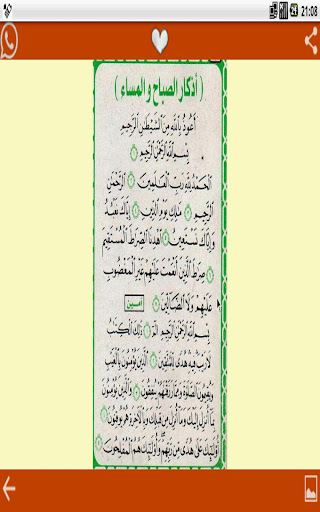 21:08
( أذكار الصباح و المساء )
أَعُوذُ بِاللَّهِ مِنَ الشَّيْطَانِ الرَّجِيمِ
بِسْمِ اللَّهِ الرَّحْمَٰنِ الرَّحِيمِ
الْحَمْدُ لِلَّهِ رَبِّ الْعَٰلَمِينَ الرَّحْمَٰنِ
الرَّحِيمِ مَٰلِكِ يَوْمِ الدِّينِ إِيَّاكَ نَعْبُدُ
وَإِيَّاكَ نَسْتَعِينُ اهْدِنَا الصِّرَٰطَ الْمُسْتَقِيمَ
صِرَٰطَ الَّذِينَ أَنْعَمْتَ عَلَيْهِمْ غَيْرِ الْمَغْضُوبِ
عَلَيْهِمْ وَلَا الضَّالِّينَ امين
بِسْمِ اللَّهِ الرَّحْمَٰنِ الرَّحِيمِ الٓمٓ ذَٰلِكَ الْكِتَٰبُ
لَا رَيْبَ فِيهِ هُدًى لِلْمُتَّقِينَ الَّذِينَ يُؤْمِنُونَ بِالْغَيْبِ
وَيُقِيمُونَ الصَّلَوٰةَ وَمِمَّا رَزَقْنَٰهُمْ يُنفِقُونَ وَالَّذِينَ يُؤْمِنُونَ
بِمَا أُنزِلَ إِلَيْكَ وَمَا أُنزِلَ مِن قَبْلِكَ وَبِالْآخِرَةِ هُمْ يُوقِنُونَ
أُولَٰئِكَ عَلَىٰ هُدًى مِن رَبِّهِمْ وَأُولَٰئِكَ هُمُ الْمُفْلِحُونَ